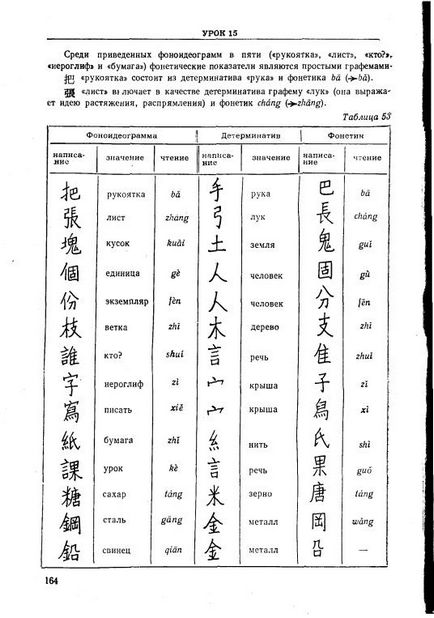 УРОК 15
Среди приведенных фоноидеограмм в пяти («рукоятка», «лист», «кто?»,
«иероглиф» и «бумага») фонетические показатели являются простыми графемами.
把 «рукоятка» состоит из детерминатива «рука» и фонетика bā (→bǎ).
張 «лист» включает в качестве детерминатива графему «лук» (она выража-
ет идею растяжения, распрямления) и фонетик cháng (→zhāng).
Таблица 53
Фоноидеограмма Детерминатив Фонетик
написа-ние значение чтение написа-ние значение написа-ние чтение
把 рукоятка bǎ 手 рука 巴 bā
張 лист zhang 弓 лук 長 cháng
塊 кусок kuài 土 земля 鬼 guǐ
個 единица gè 人 человек 固 gù
份 экземпляр fèn 人 человек 分 fēn
枝 ветка zhī 木 дерево 支 zhī
誰 кто? shuí 言 речь 隹 zhuī
字 иероглиф zì 宀 крыша 子 zǐ
寫 писать xiě 宀 крыша xì
紙 бумага zhǐ 糹 нить 氏 shì
課 урок kè 言 речь 果 guǒ
糖 сахар táng 米 зерно 唐 táng
鋼 сталь gāng 金 металл 岡 wǎng
鉛 свинец qiān 金 металл —
164